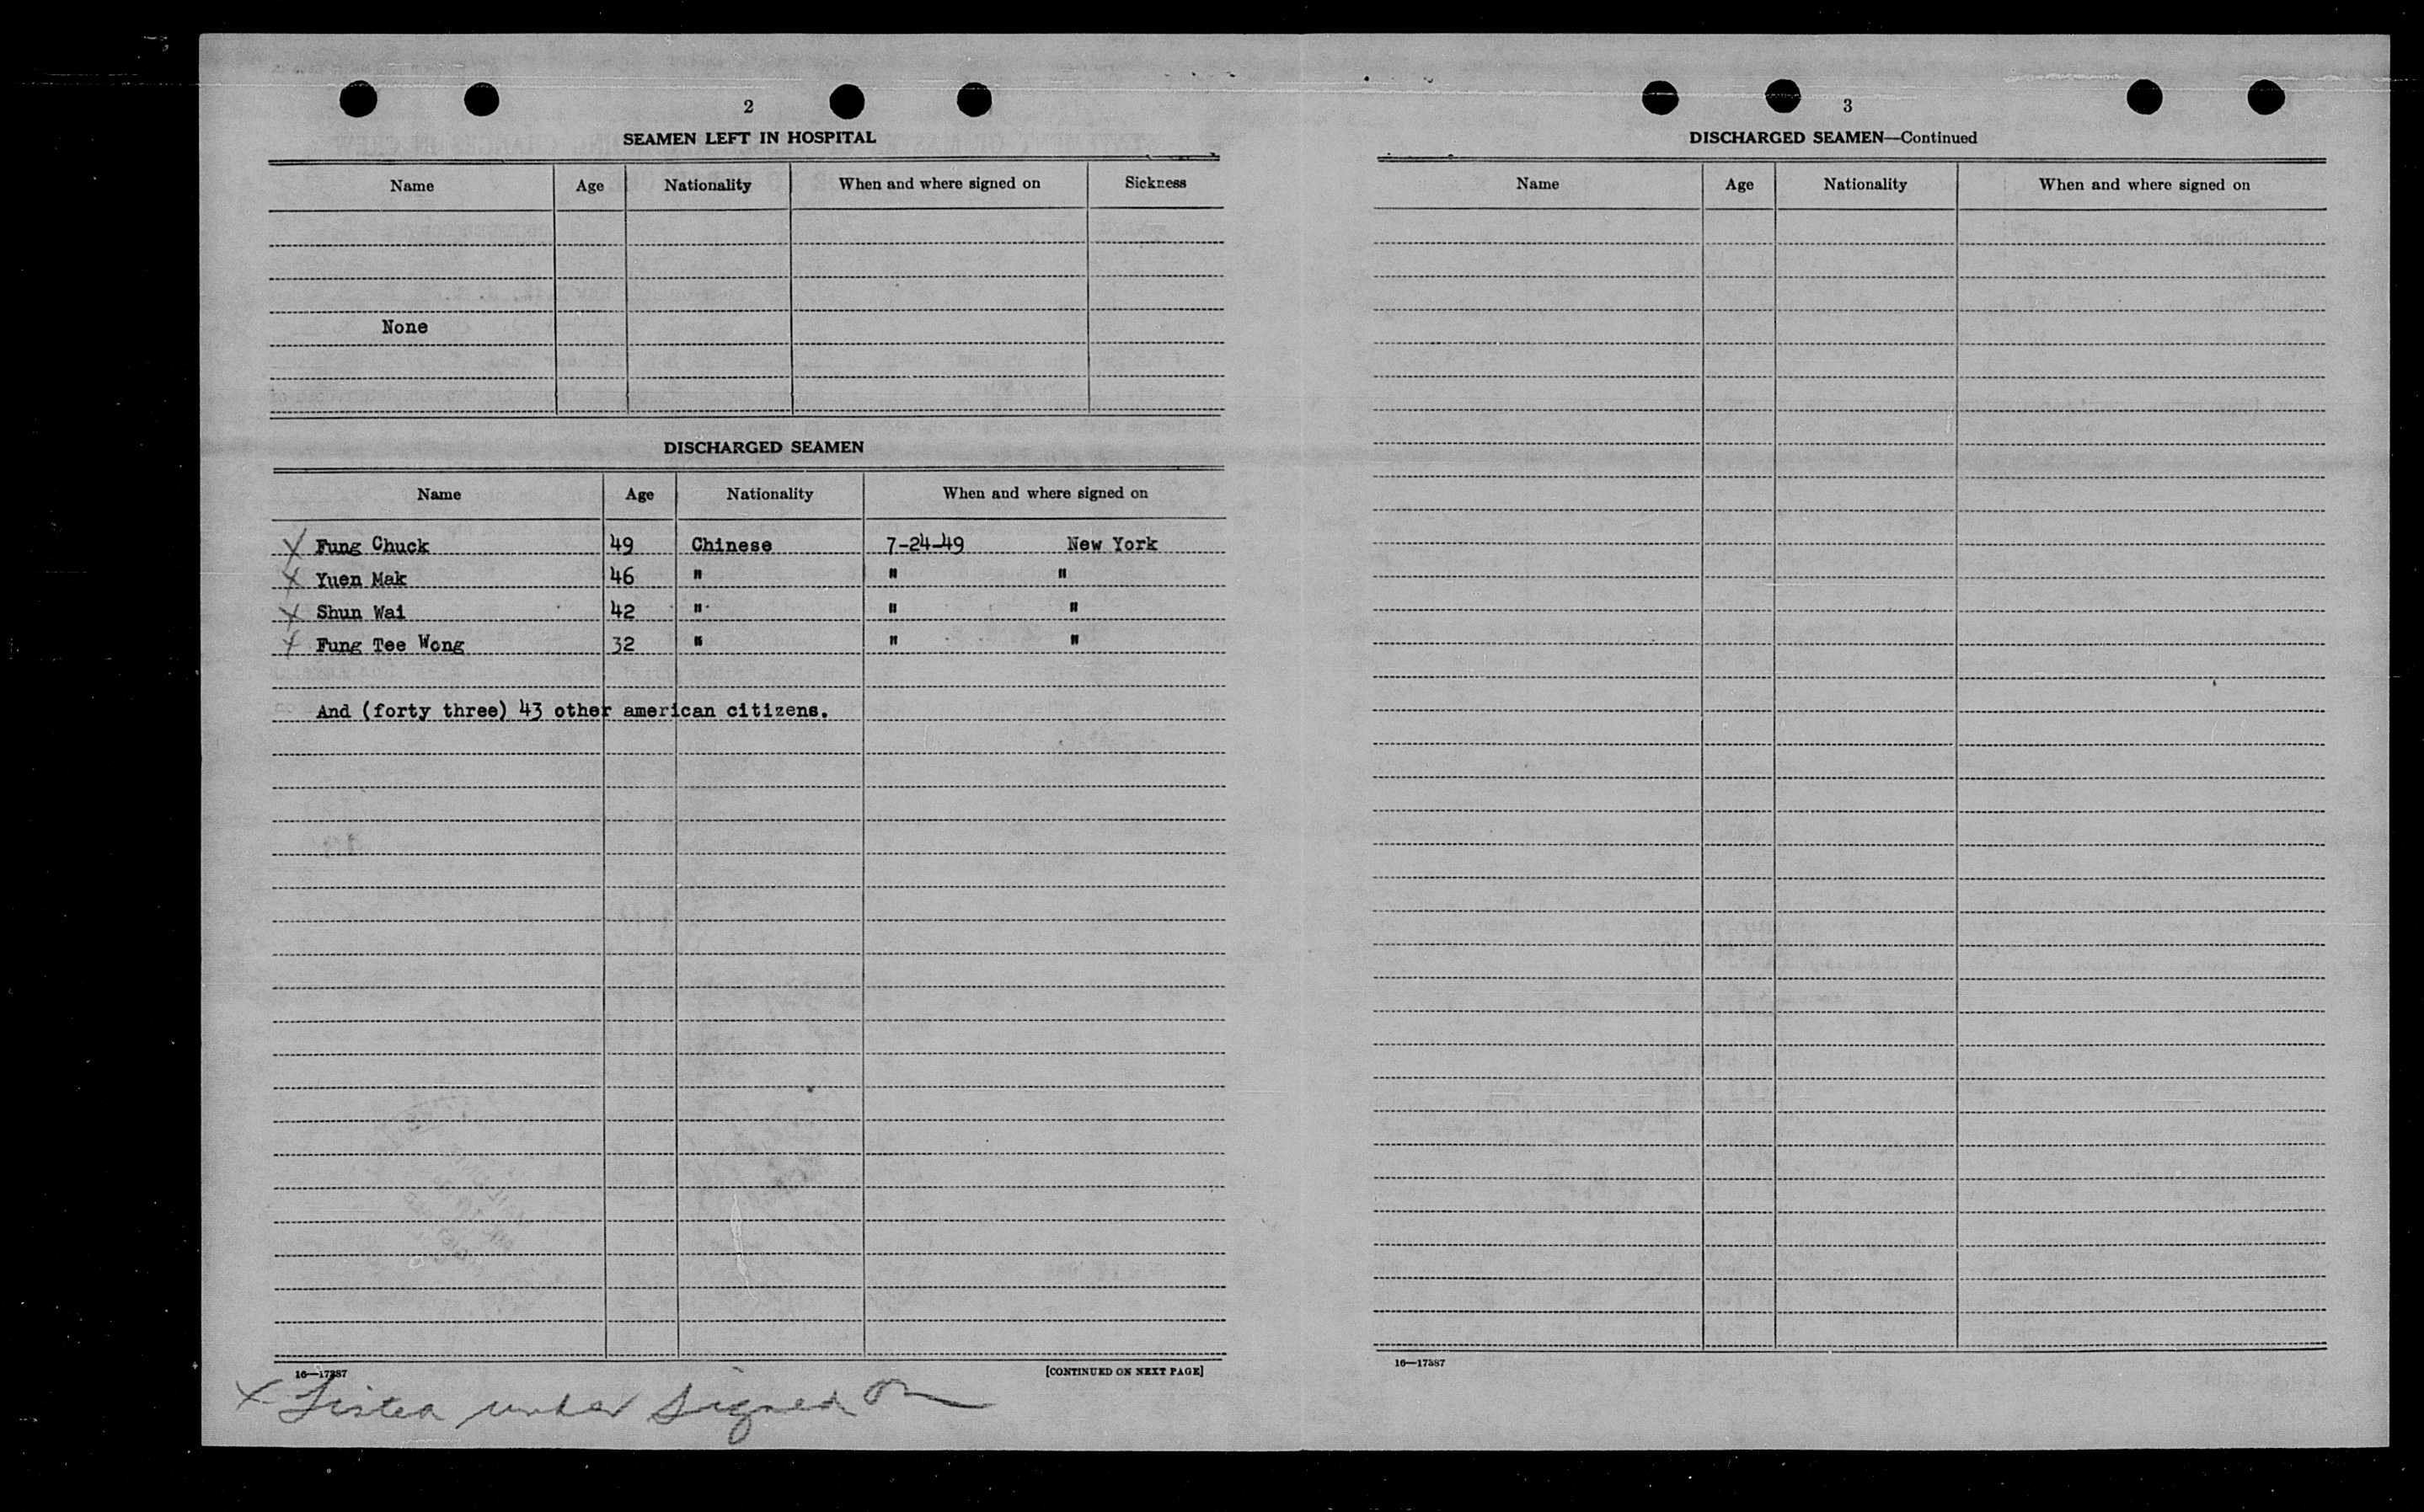 2
SEAMEN LEFT IN HOSPITAL
Name Age Nationality When and where signed on Sickness
None
DISCHARGED SEAMEN
Name Age Nationality When and where signed on
X Fung Chuck 49 Chinese 7-24-49 New York
X Yuen Mak 46 " " "
X Shun Wai 42 " " "
X Fung Tee Wong 32 " " "
And (forty three) 43 other american citizens.
16—17387 [CONTINUED ON NEXT PAGE]
X Listed under signed on
3
DISCHARGED SEAMEN—Continued
Name Age Nationality When and where signed on
16—17387